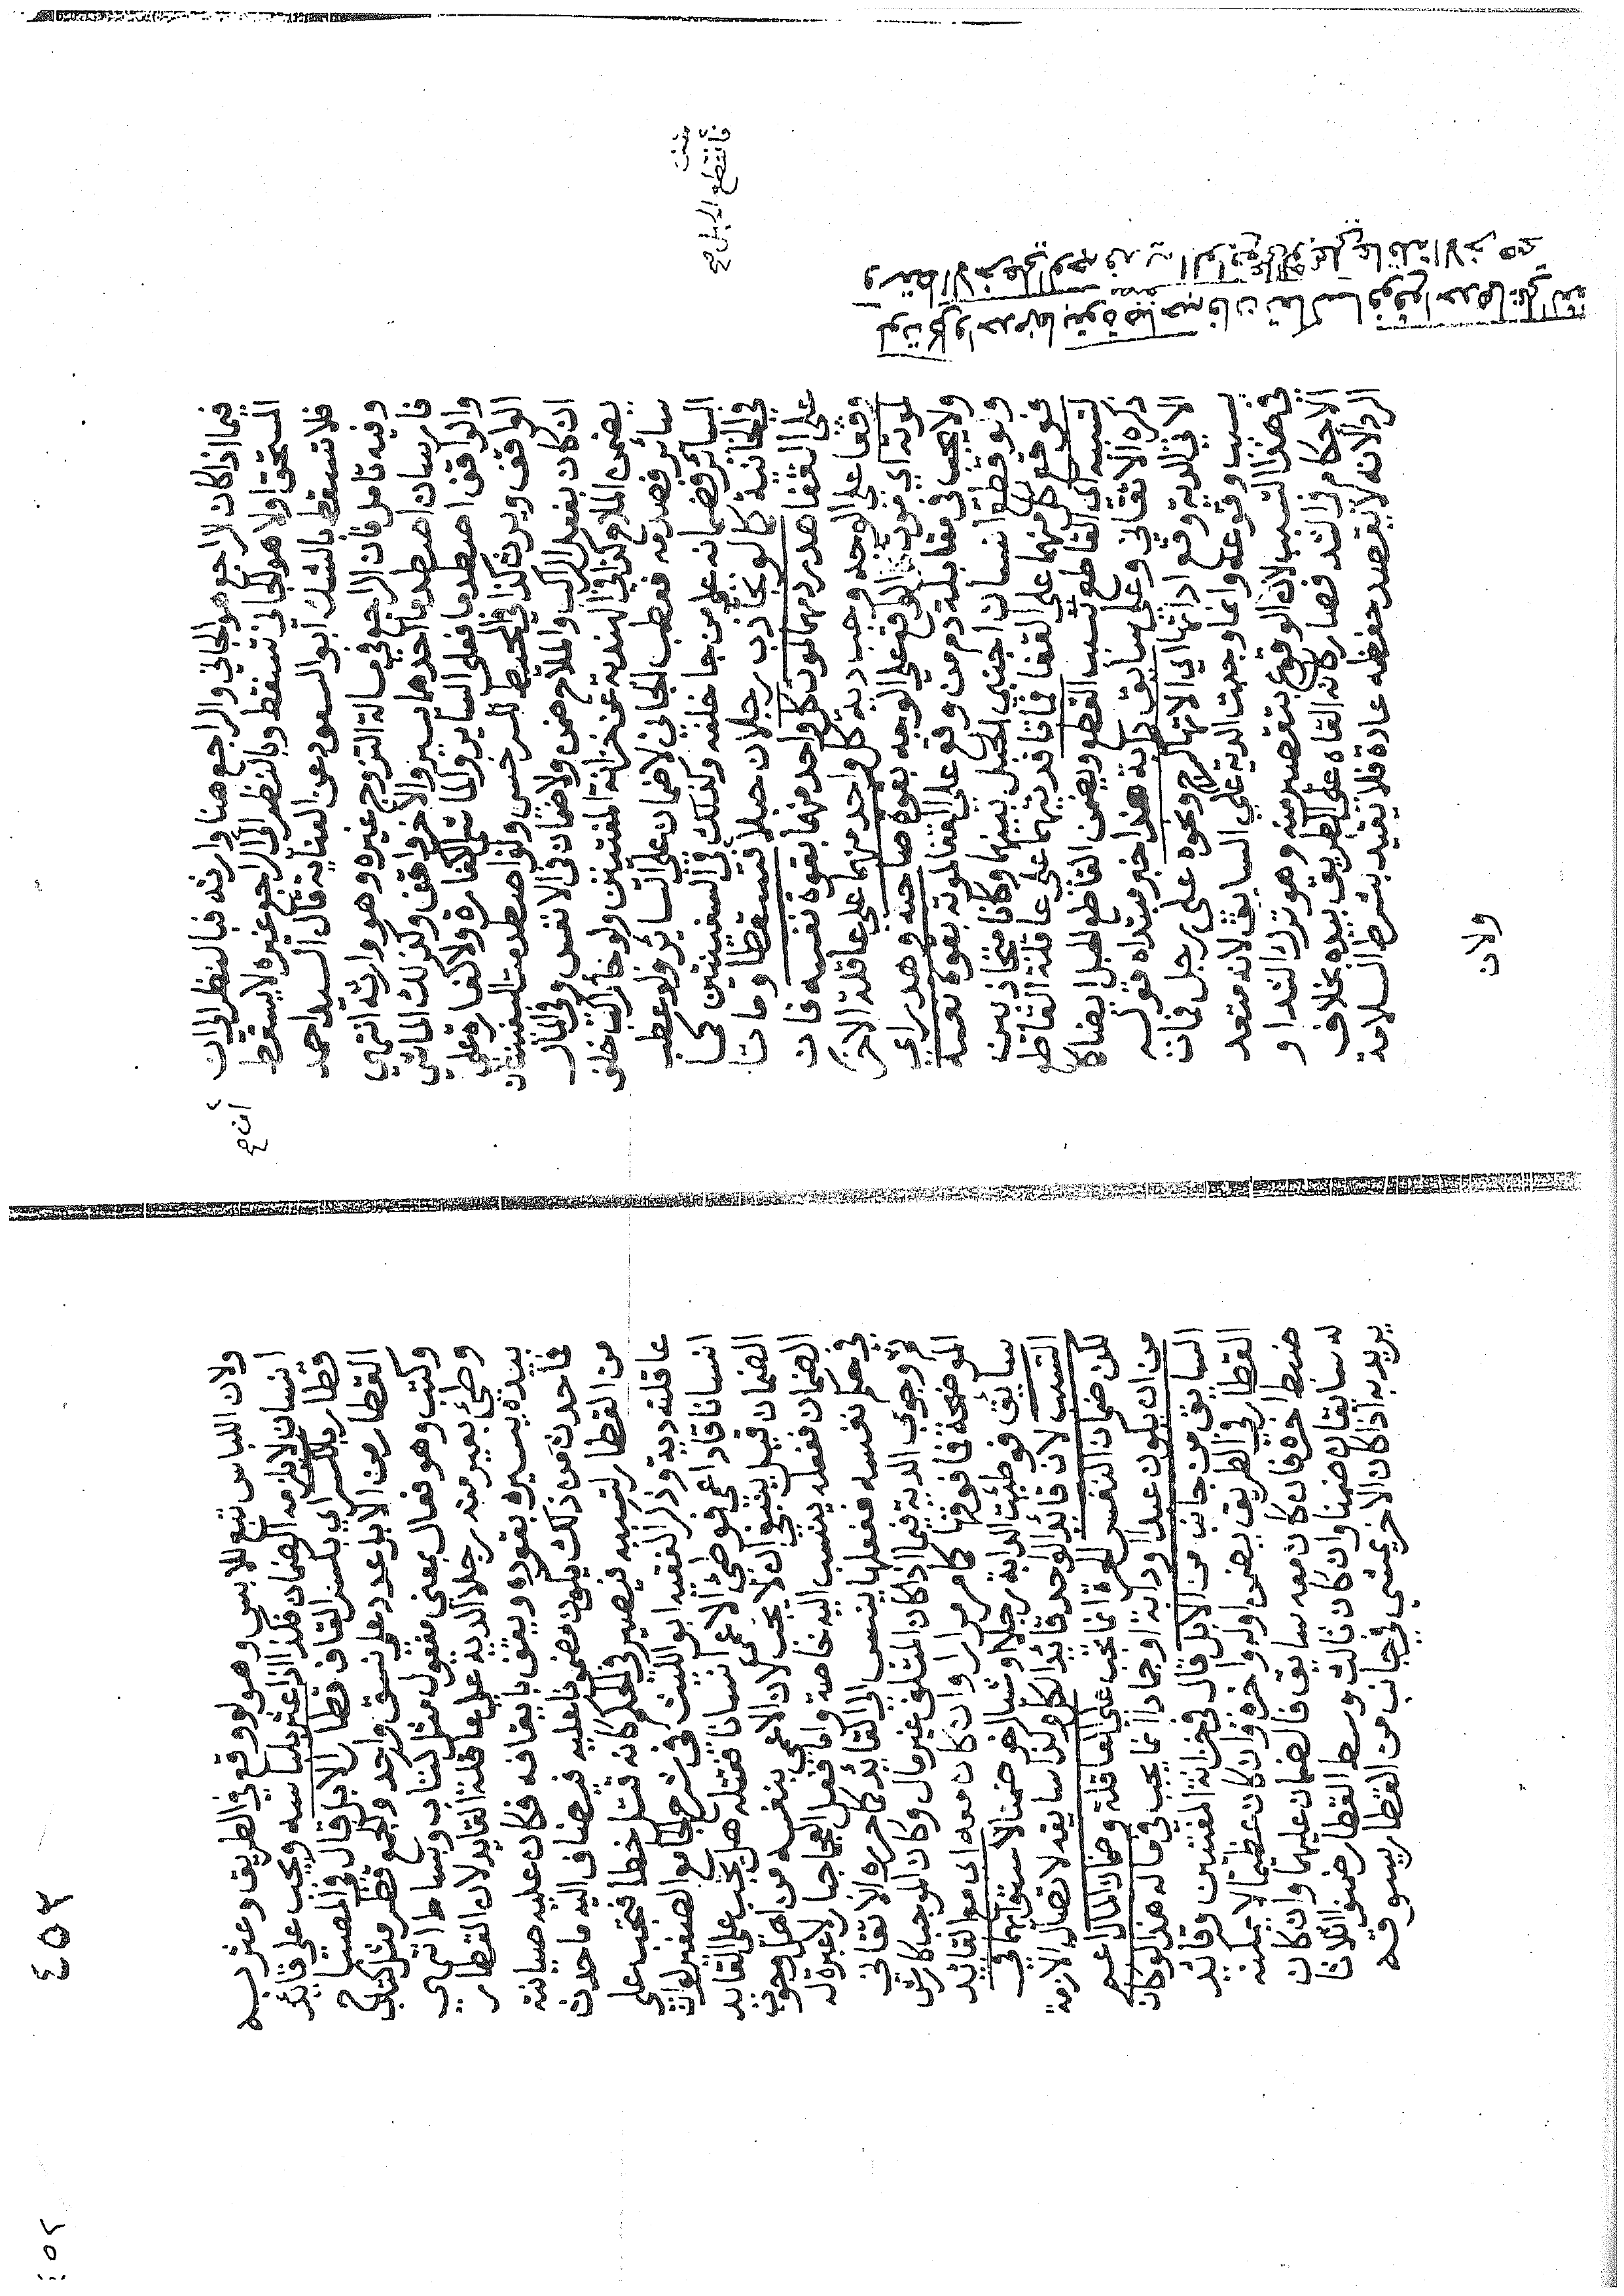 فيما اذا كان الراجع هو الجاني والراجع هنا وارثه فبالنظر الى ان
المستحق اولا هو الجاني تسقط وبالنظر الى ان الراجع غيره لا يسقط
فلا تسقط بالشك ابو السعود عن العناية قال السيد احمد
وفيه تأمل فان الراجع في مسالة التزوج غيره وهو وارثه انتهى
فارسان اصطدما احدهما يسير والاخر واقف وكذلك الماشي
والواقف اصطدما فعلى الساير والماشي الكفارة ولا كفارة على
الواقف ويرث كذا في المحيط للسرخسي ولو اصطدمت السفينتان
ان كان بفعل الراكب والملاح ضمن ولا ضمان في الانفس وفي المال
يضمن الملاح كذا في الهندية عن خزانة المفتيين ولو جا راكب خلف
ساير فصدمه فعطب الجاني لا ضمان على الساير ولو عطب
الساير فضمانه على من جا خلفه وكذلك في السفينتين كما
في الخانية كما لو تجاذب رجلان حبلا فسقطا وماتا
على القفا هدر دمهما لموت كل واحد منهما بقوة نفسه فان
وقعا على الوجه وجب دية كل واحد منهما على عاقلة الاخر
لموته اي موت الواقع على الوجه بقوة صاحبه وهدر راي
ولا يجب في مقابلة دم من وقع على القفا لموته بقوة نفسه
ولو قطع انسان اجنبي الحبل بينهما وكانا متجاذبين
فوقع كل منهما على القفا فماتا فديتهما على عاقلة القاطع
لتسببه اي القاطع تسبب القطع ويضمن القاطع الحبل ايضا كما
ذكره الاتقاني وعلى سايق دابة هذا خبر مبتداه قوله
الاتي الدية وقع اداتها اي الاتها كسرج ونحوه على رجل فمات
سبب وقوعه وانما وجبت الدية على السايق لانه متعد
في هذا التسبب لان الوقوع بتقصير منه وهو ترك الشد او
الاحكام في الشد فصار كانه القاه على الطريق بيده بخلاف
الرداء لانه لا يقصد حفظه عادة فلا يتقيد بشرط السلامة
ولان
فانقطع الحبل صح
ان صح
ولان اللباس تبع للابس وهو لو وقع في الطريق وعثر به
انسان لا يلزمه الضمان فكذا اذا عثر بلباسه ويجب على قايد
قطار بالكسر اي بكسر القاف قطار الابل قال في المصباح
القطار من الابل عدد على نسق واحد والجمع قطر مثل كتاب
وكتب وهو فعال بمعنى مفعول مثل كتاب وبساط انتهى
وطئ بعير منه رجلا الدية على عاقلة القايد لان القطار
بيده يسيره بقوده ويقف بايقافه فكان عليه صيانته
فما حدث من ذلك يكون مضمونا عليه فيضاف اليه ما حدث
من القطار لتسببه فيصير في الحكم كانه قتل خطا فتجب على
عاقلته دية وذكر الفقيه ابو الليث في شرح الجامع الصغير لو ان
انسانا قاد اعمى فوطئ الاعمى انسانا فقتله هل يجب على القايد
الضمان قيل ينبغي ان لا يجب لان الاعمى بنفسه من اهل وجوب
الضمان ففعله ينسب اليه خاصة واما فعل العجما جبار لا عبرة له
في حكم نفسه ففعلها ينسب الى القايد كما حرره الاتقاني
ثم وجوب الدية فيما اذا كان المتلف غير مال وكان الموجب كارش
الموضحة فما فوقها كما مر مرارا وان كان معه اي مع القايد
سايق فوطئت الدابة رجلا او شيا اخر ضمنا لاستوايهما في
التسبب لان قائد الواحد قائد الكل وكذا سايقه لاتصال الازمة
لكن ضمان النفس الحرة انما تجب على العاقلة وضمان المال اعم
من ان يكون عبدا او دابة او جمادا انما يجب في ماله هذا لو كان
السايق من جانب من الابل قال في خزانة المفتيين وقايد
القطار في الطريق يضمن اوله واخره وان كان عظيما لا يمكنه
ضبط اخره فان كان معه سايق فالضمان عليهما وان كان
له سايقان ضمنا وان كان ثالث وسط القطار ضمنوا اثلاثا
يريد به اذا كان الاخر يمشي في جانب من القطار يسوقه
٤٥٣